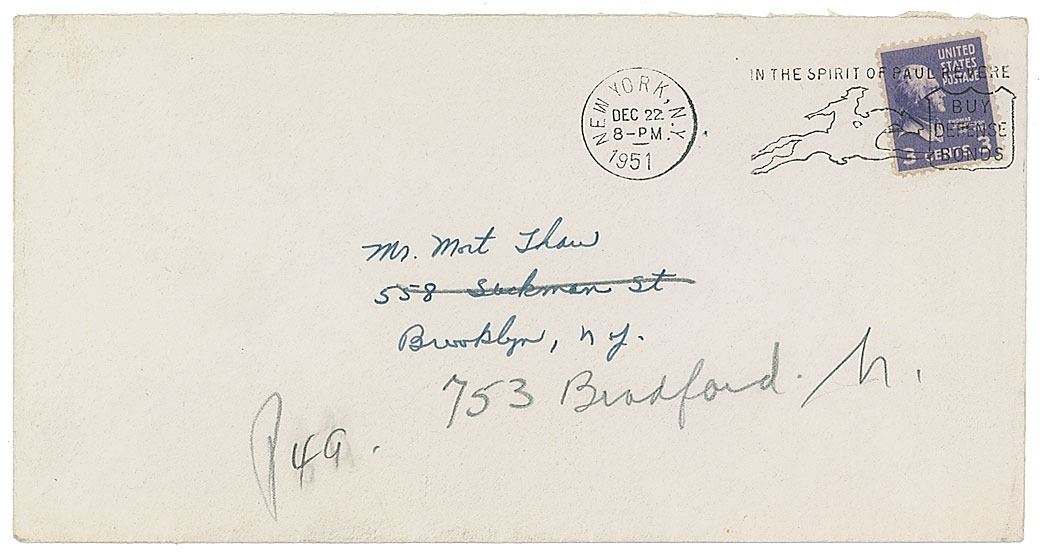 NEW YORK, N.Y.
DEC 22
8-PM
1951
IN THE SPIRIT OF PAUL REVERE
BUY
DEFENSE
BONDS
UNITED
STATES
POSTAGE
3 CENTS 3
Mr. Mort Thaw
558 St
Brooklyn, N.Y.
753 Bradford
49.